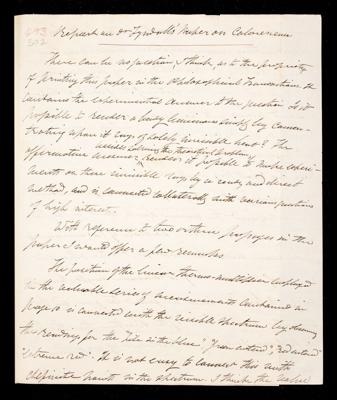 Report on Dr Tyndall's Paper on Calorescence
There can be no question I think as to the propriety
of printing this paper in the Philosophical Transactions. It
contains the experimental answer to the question Is it
possible to render a body luminous simply by concen-
trating upon it rays of solely invisible heat? The
besides solving the theoretical problem
affirmative answer renders it possible to make experi-
ments on these invisible rays by a ready and direct
method, and is connected collaterally with various questions
of high interest.
With reference to two or three passages in the
paper I would offer a few remarks
The position of the linear thermo-multiplier employed
in the valuable series of measurements contained in
page 10 is connected with the visible spectrum by
the readings for the "blue" "red entered"
"extreme red". It is not easy to connect this with
definite points in the spectrum. I think the value